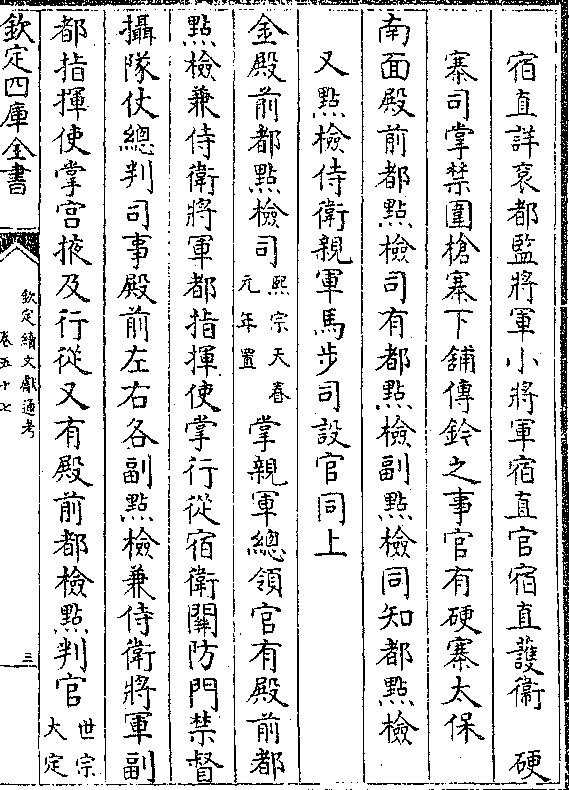 宿直詳衮都監將軍小將軍宿直官宿直護衞 硬
寨司掌禁圍槍寨下舖傳鈴之事官有硬寨太保
南面殿前都點檢司有都點檢副點檢同知都點檢
又點檢侍衛親軍馬步司設官同上
金殿前都點檢司熙宗天眷元年置掌親軍總領官有殿前都
點檢兼侍衛將軍都指揮使掌行從宿衛關防門禁督
攝隊仗總判司事殿前左右各副點檢兼侍衛將軍副
都指揮使掌宫掖及行從又有殿前都檢點判官世宗大定
欽定四庫全書
欽定續文獻通考
卷五十七
三